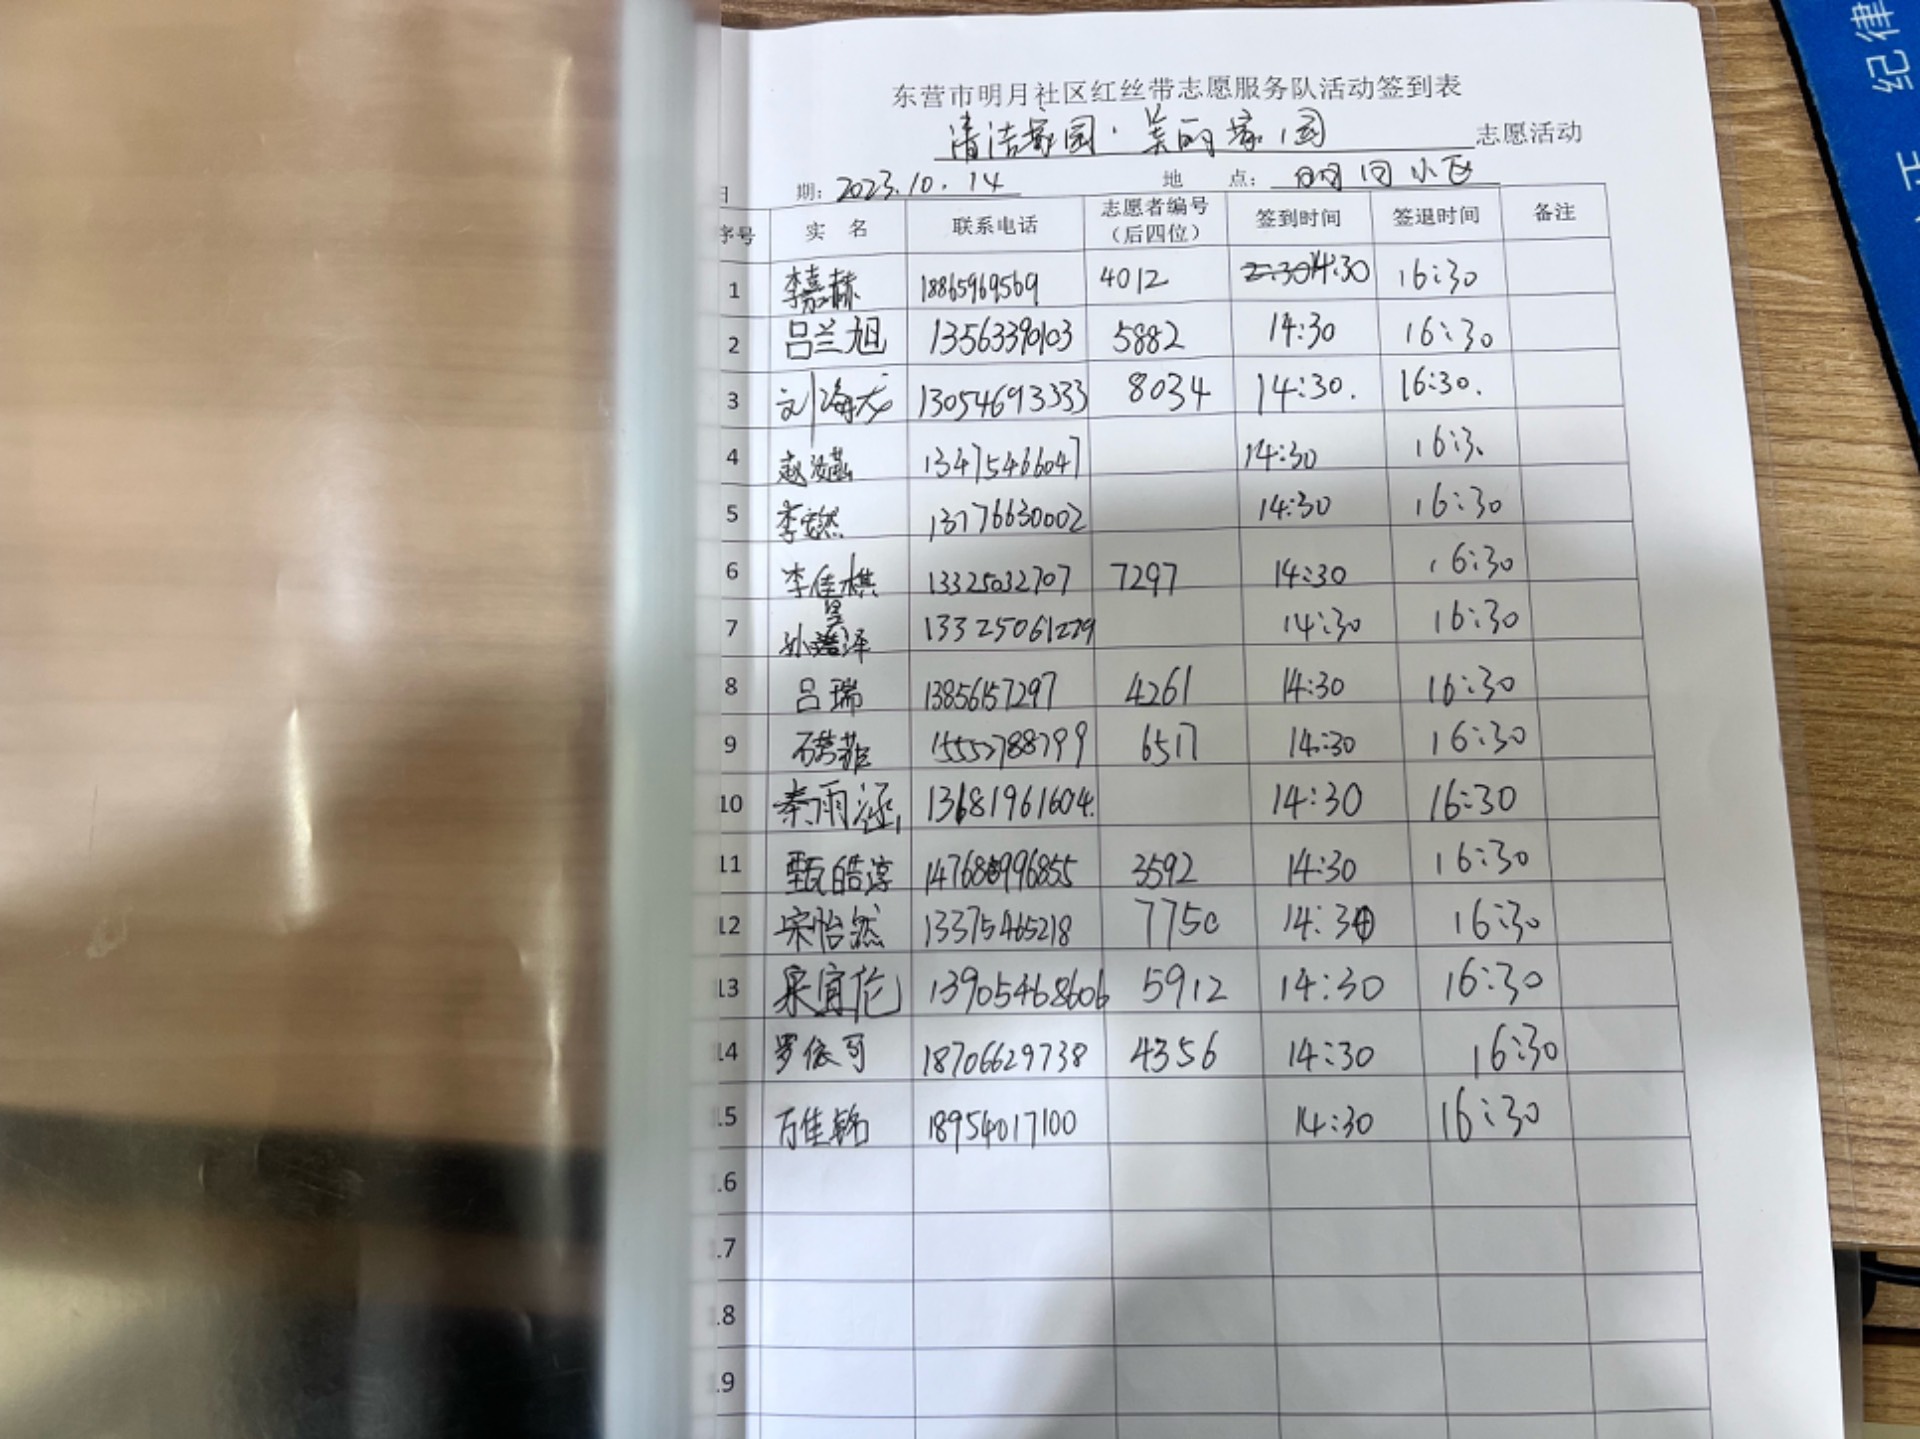 东营市明月社区红丝带志愿服务队活动签到表
清洁家园·美丽家园 志愿活动
日 期: 2023.10.14 地 点: 明月小区
序号 实 名 联系电话 志愿者编号（后四位） 签到时间 签退时间 备注
1 李嘉赫 18865969569 4012 14:30 16:30
2 吕兰旭 13563390103 5882 14:30 16:30
3 刘海龙 13054693333 8034 14:30. 16:30.
4 赵 13475466047 14:30 16:3
5 李安然 13776630002 14:30 16:30
6 李佳棋 13325032707 7297 14:30 16:30
7 孙昊泽 13325061279 14:30 16:30
8 吕瑞 13856157297 4261 14:30 16:30
9 石 菲 15553788799 6517 14:30 16:30
10 秦雨涵 13681961604. 14:30 16:30
11 甄皓淳 3592 14:30 16:30
12 宋怡然 13375465218 7750 14:30 16:30
13 宜伦 13905468606 5912 14:30 16:30
14 罗依可 18706629738 4356 14:30 16:30
15 万佳铭 18954017100 14:30 16:30
.6
.7
.8
.9
纪律
正